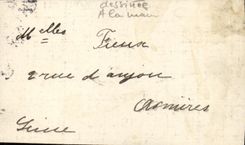 dessinée
A la main
Melles Fieux
2 rue d'anjou
Asnières
Seine